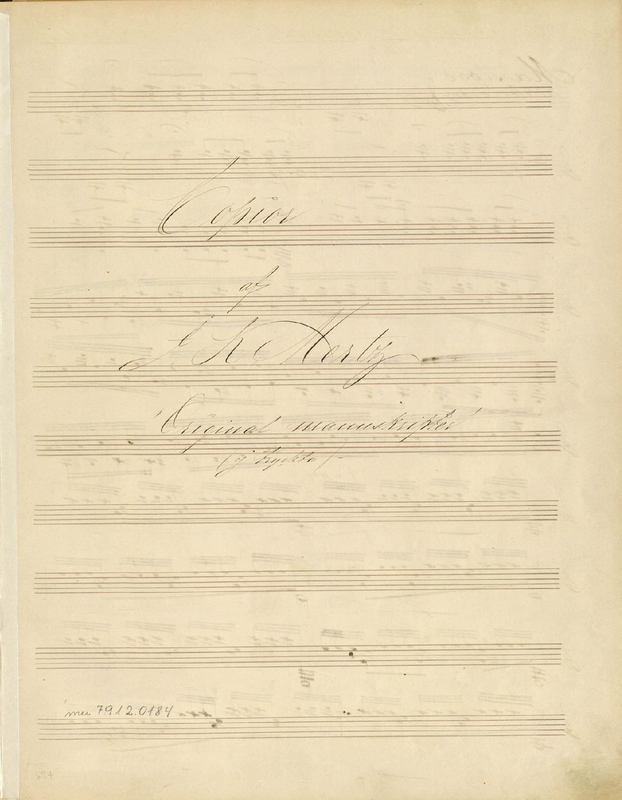 Copior
af
J K Mertz
"Original" manuskripter
(ej tryckta)
mu 7912.0184